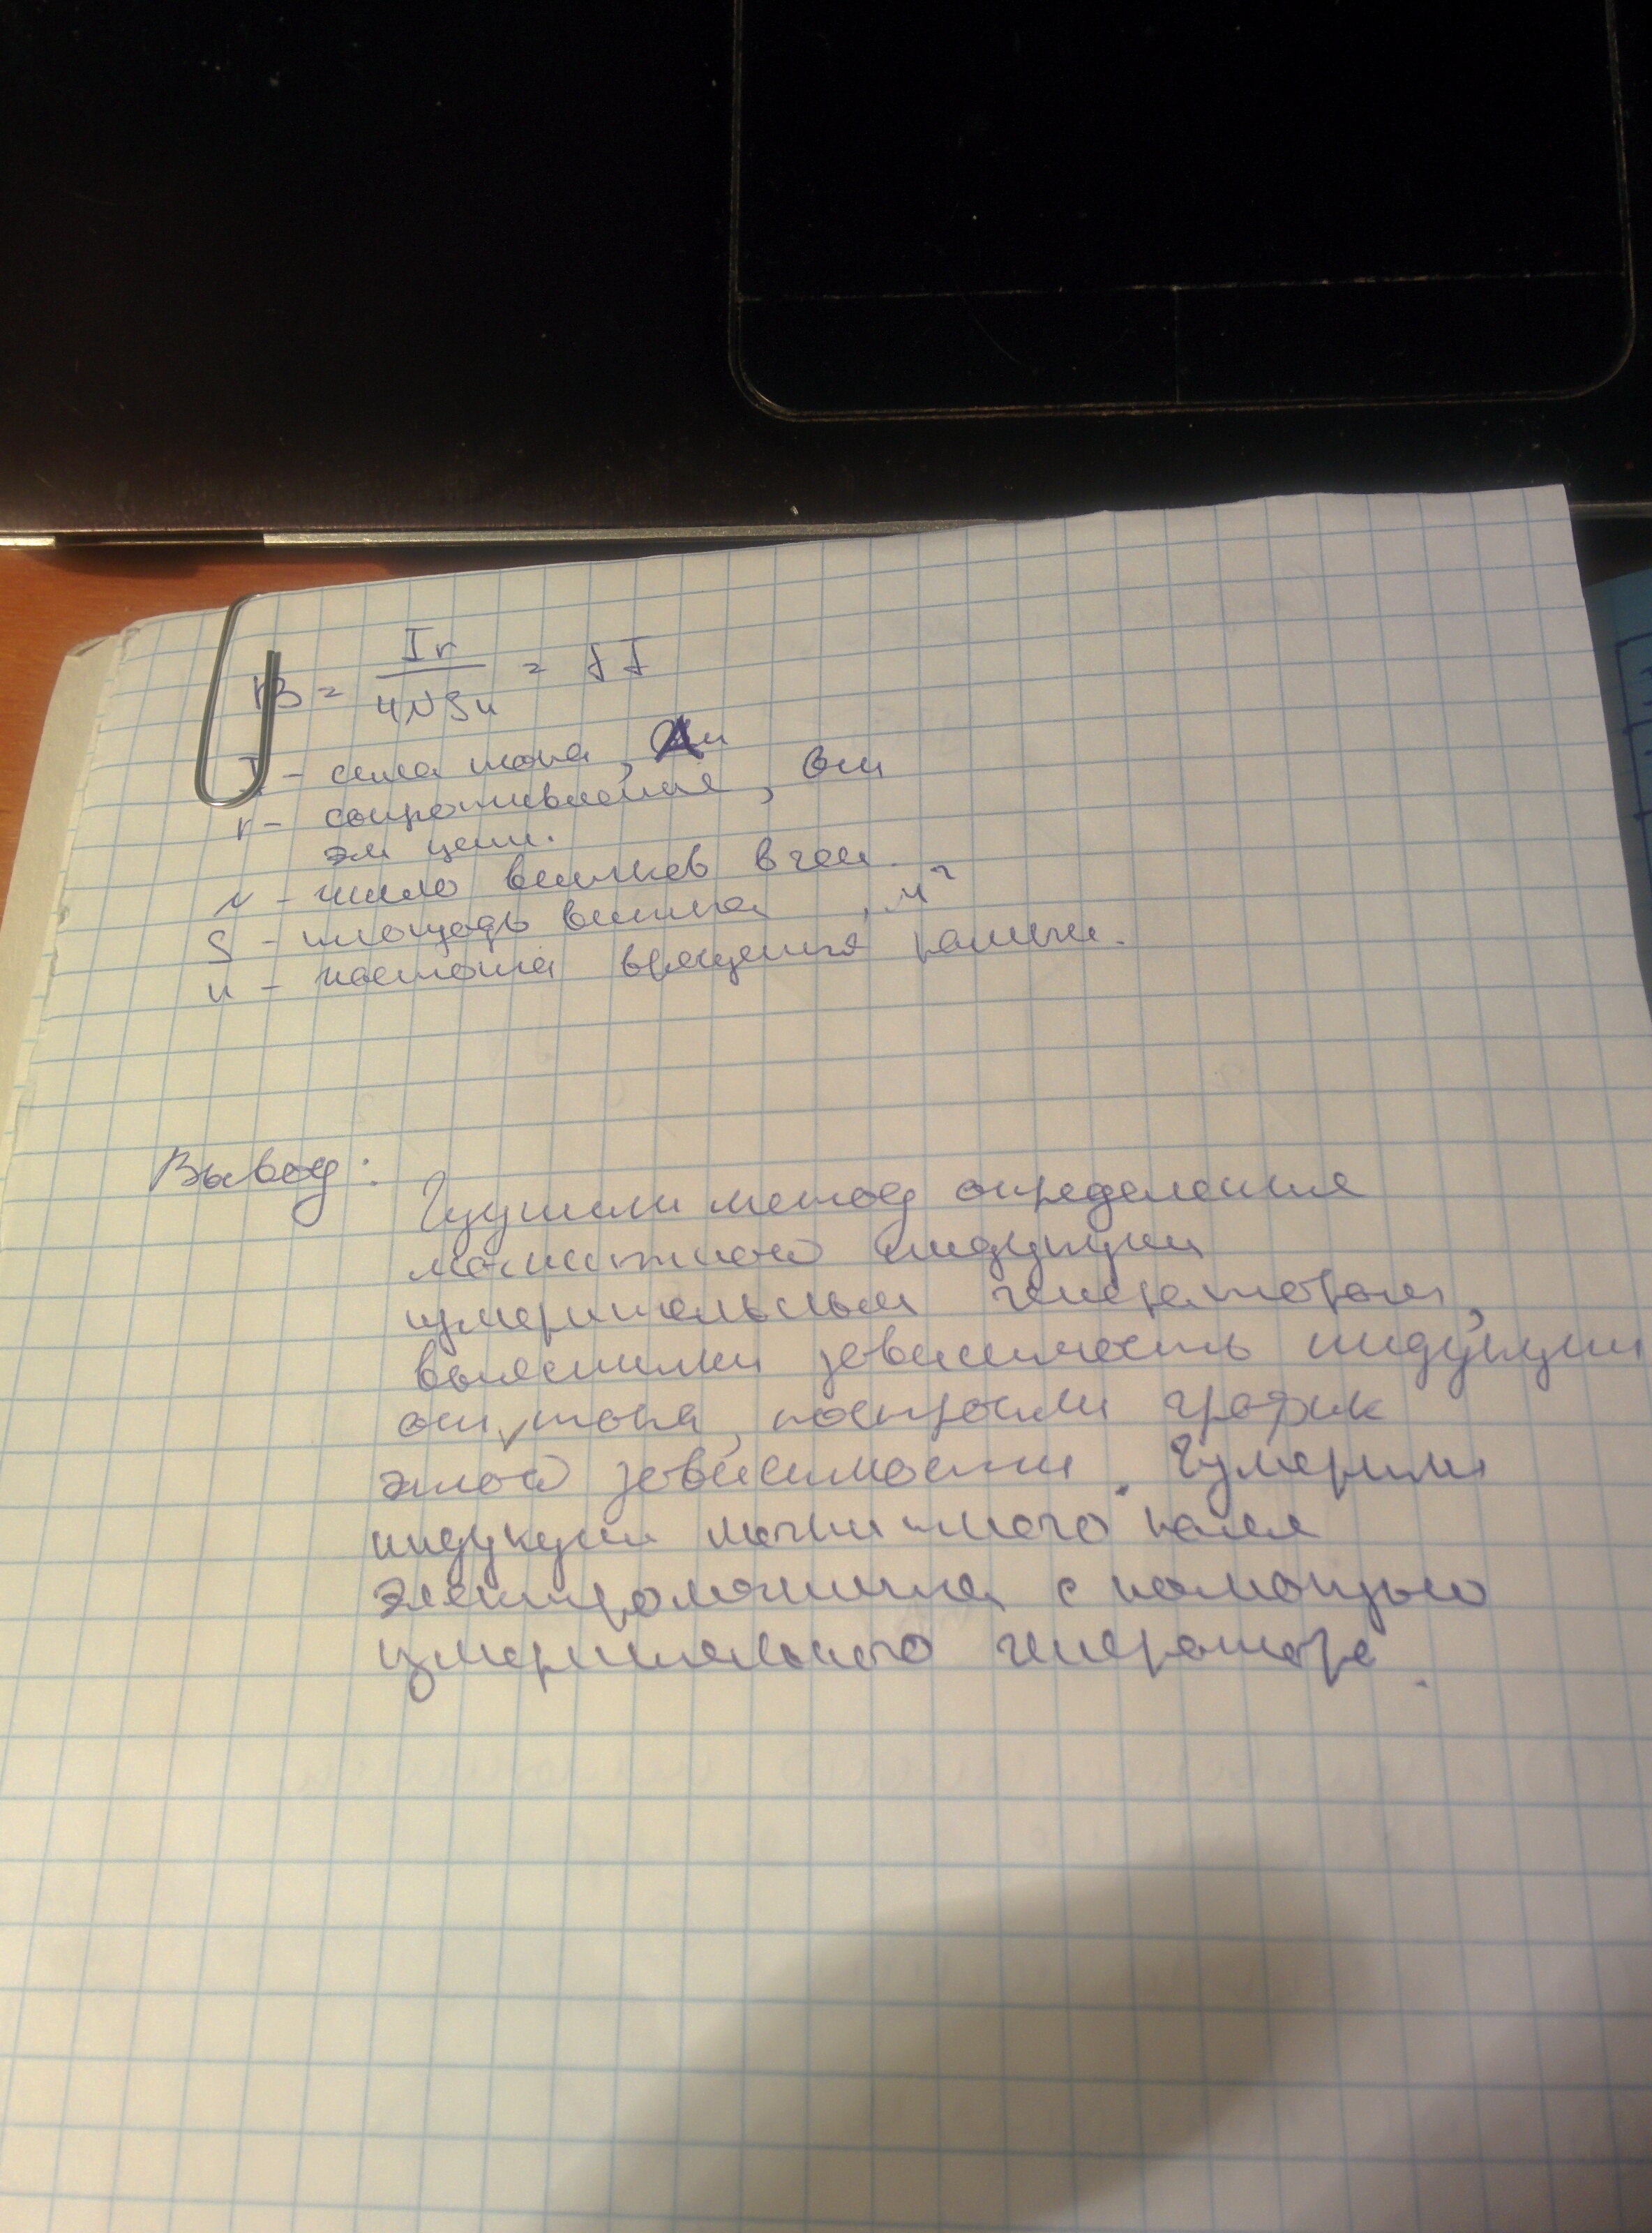 B = Ir / 4NSn = γI
I - сила тока, А
r - сопротивление, Ом
эл цепи.
N - число витков в
S - площадь витка, м²
n - частота вращения рамки.
Вывод:
Изучили метод определения
магнитной индукции
измерительным генератором,
выяснили зависимость индукции
от тока, построили график
этой зависимости. Измерили
индукции магнитного поля
электромагнита с помощью
измерительного генератора.